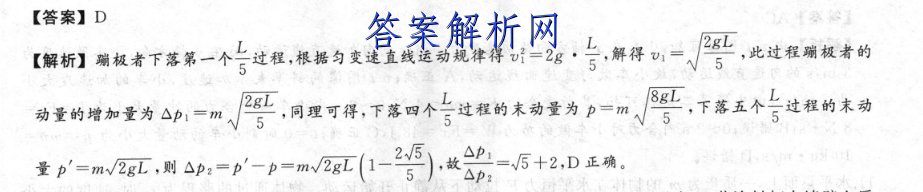 【答案】D
答案解析网
【解析】蹦极者下落第一个 L/5 过程,根据匀变速直线运动规律得 v₁²=2g·L/5,解得 v₁=√(2gL/5),此过程蹦极者的
动量的增加量为 Δp₁=m√(2gL/5),同理可得,下落四个 L/5 过程的末动量为 p=m√(8gL/5),下落五个 L/5 过程的末动
量 p′=m√2gL,则 Δp₂=p′-p=m√2gL(1-2√5/5),故 Δp₁/Δp₂=√5+2,D 正确。